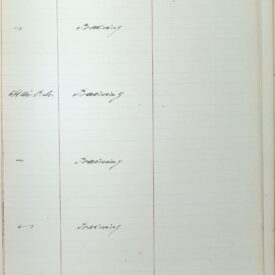 Training
Training
Training
Training